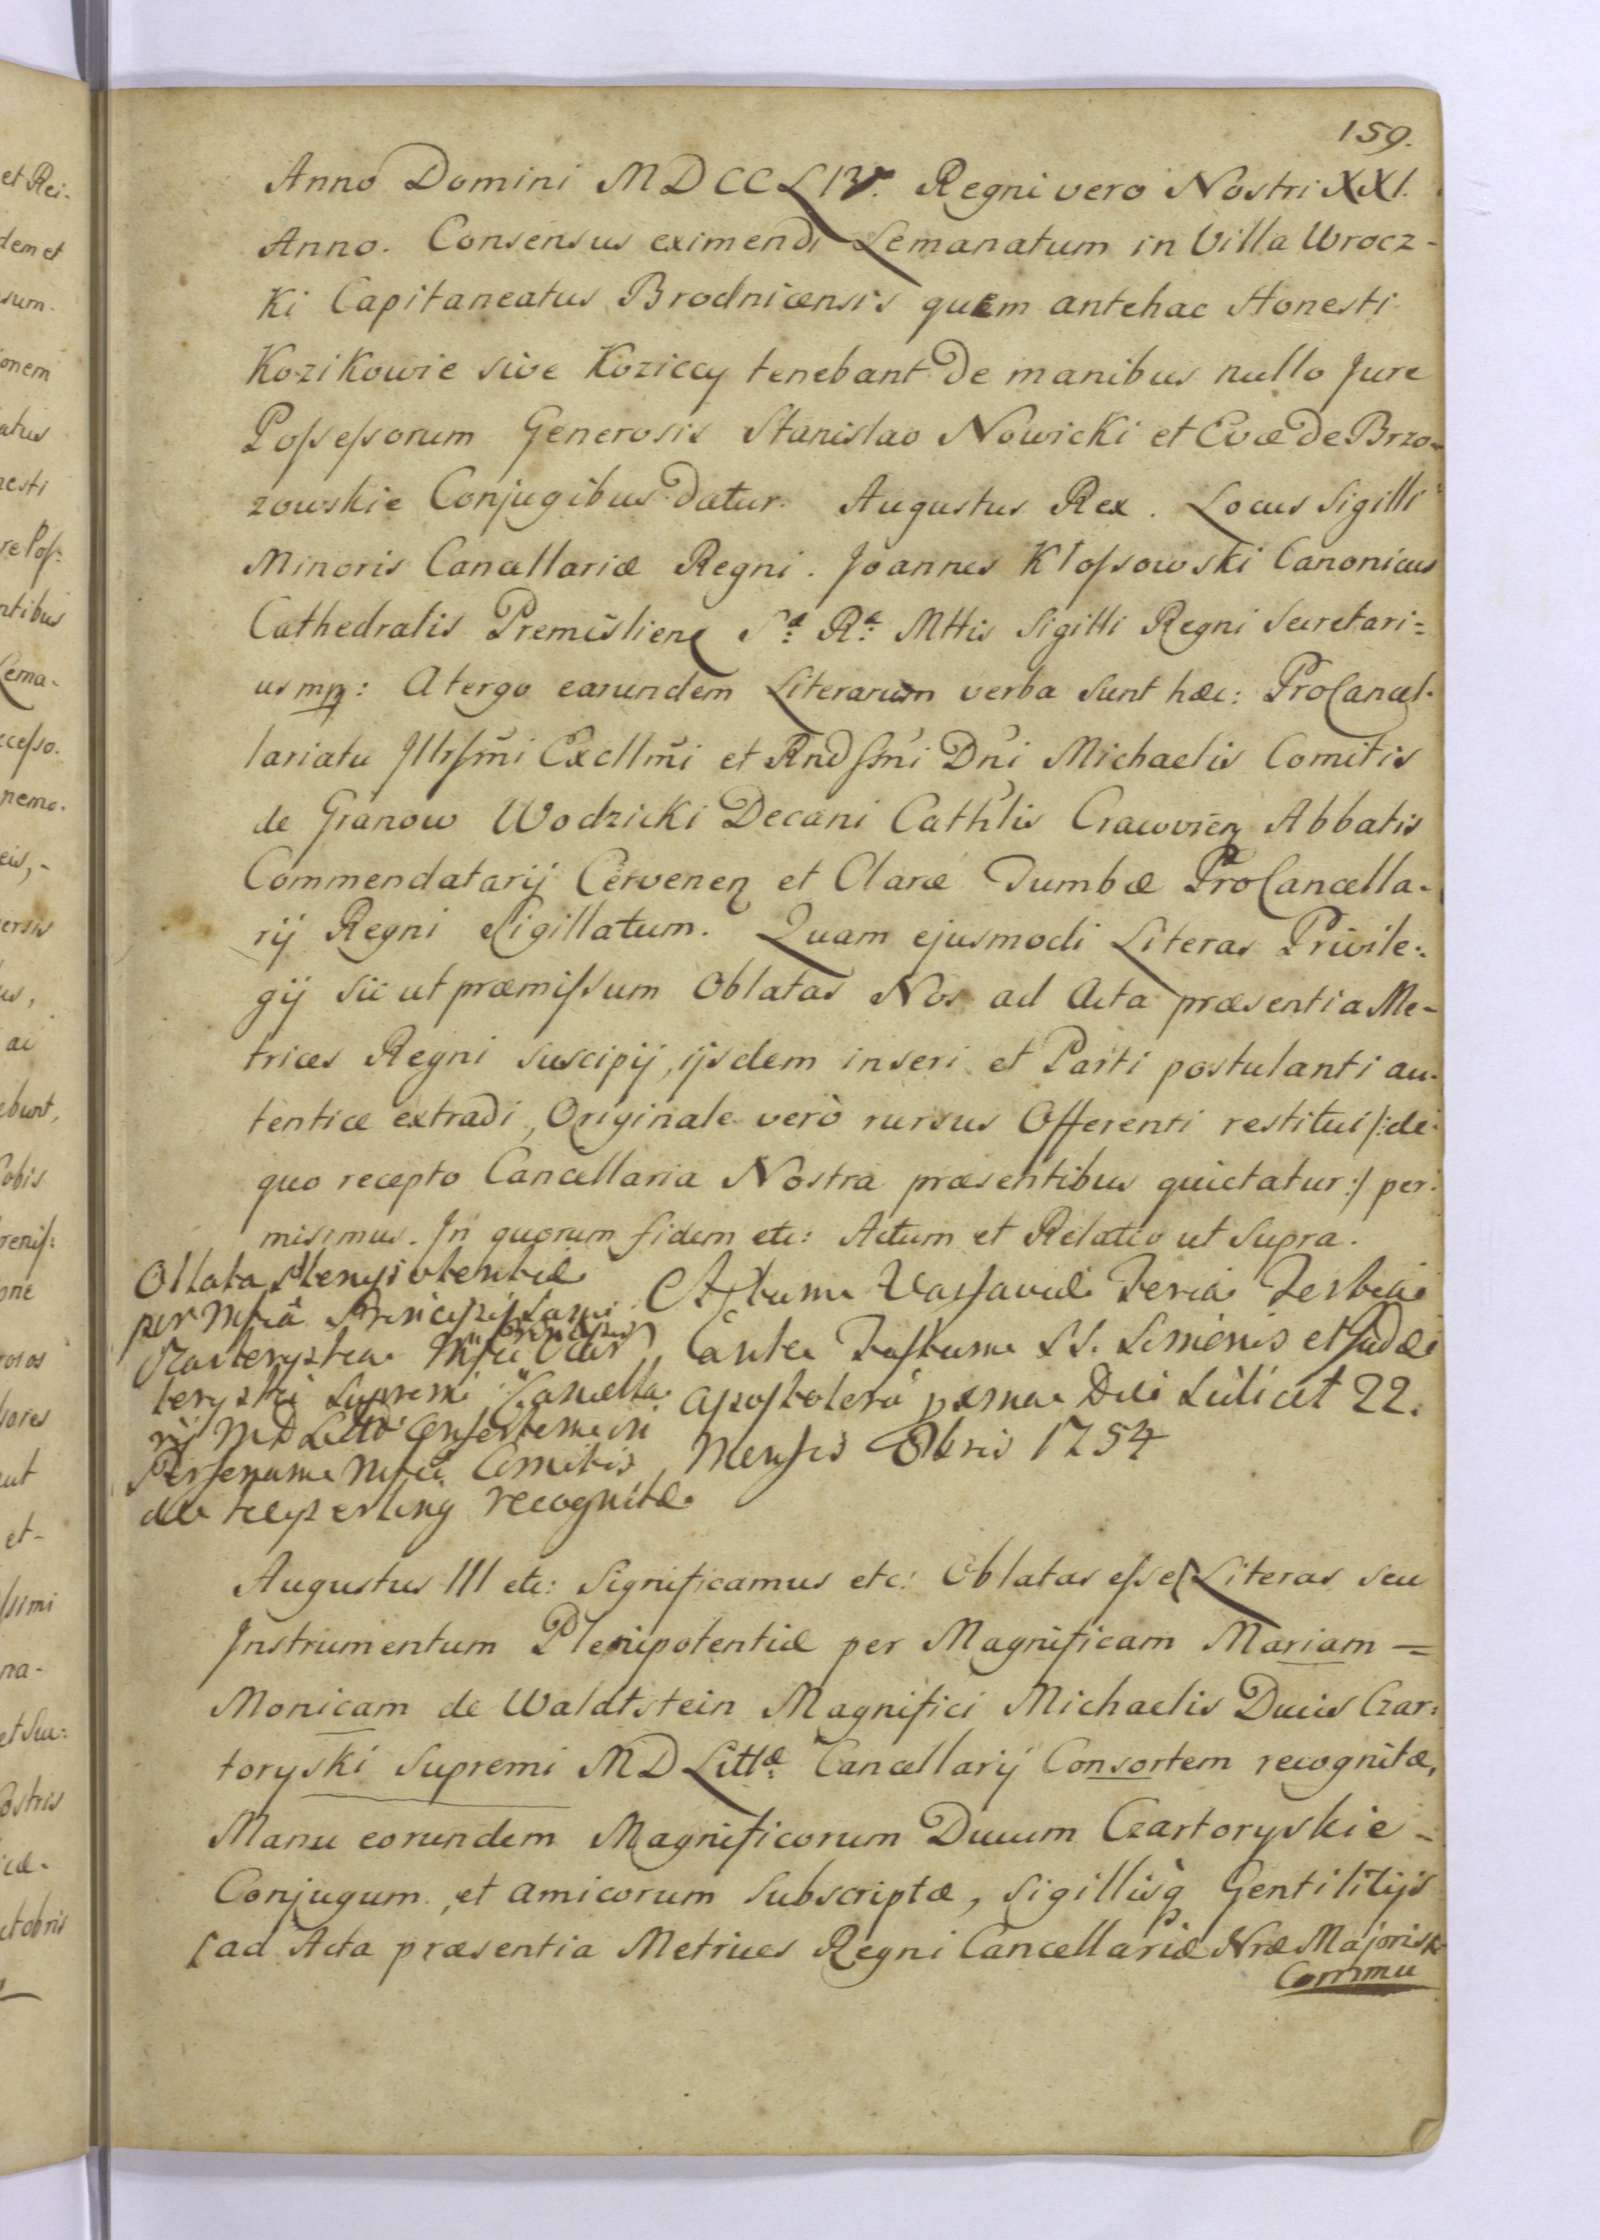 159.
Anno Domini MDCCLIV. Regni vero Nostri XXI.
Anno. Consensus eximendi Lemanatum in Villa Wrocz-
ki Capitaneatus Brodnicensis quem antehac Honesti
Kozikowie sive Koziccy tenebant de manibus nullo Jure
Possessorum Generosis Stanislao Nowicki et Evæ de Brzo-
zowskie Conjugibus datur. Augustus Rex. Locus Sigilli
Minoris Cancellariæ Regni. Joannes Kłossowski Canonicus
Cathedralis Premislien S.æ R.æ Mttis Sigilli Regni Secretari=
us mp: A tergo earundem Literarum verba sunt hæc: ProCancel-
lariatu Illrssmi Excllmi et Rndssmi Dni Michaelis Comitis
de Granow Wodzicki Decani Cathlis Cracovien Abbatis
Commendatarij Cervenen et Claræ Tumbæ ProCancella-
rij Regni Sigillatum. Quam ejusmodi Literas Privile:
gij sic ut præmissum Oblatas Nos ad Acta præsentia Me-
trices Regni suscipij, ijsdem inseri et Parti postulanti au-
tenticæ extradi, Originale verò rursus Offerenti restitui /:de
quo recepto Cancellaria Nostra præsentibus quietatur:/ per-
misimus. In quorum fidem etc: Actum et Relatio ut supra.
Oblata Plenipotentiæ
per Mficã Principissam
Czartoryska Mfici Principis Czar
toryski Supremi Cancella
rij MD Litto Consortem in
Personam Mfici Comitis
de recognitæ
Actum Varsaviæ Feria Tertia
ante Festum SS. Simonis et Judæ
Apostolorũ pxma Die scilicet 22.
Mensis 8bris 1754
Augustus III etc: Significamus etc: Oblatas esse Literas seu
Instrumentum Plenipotentiæ per Magnificam Mariam =
Monicam de Waldtstein Magnifici Michaelis Ducis Czar:
toryski Supremi MD Littæ Cancellarij Consortem recognitæ,
Manu eorundem Magnificorum Ducum Czartoryskie -
Conjugum, et amicorum subscriptæ, sigillisq̀ Gentilitijs
ad Acta præsentia Metrices Regni Cancellariæ Nræ Majoris
Commu